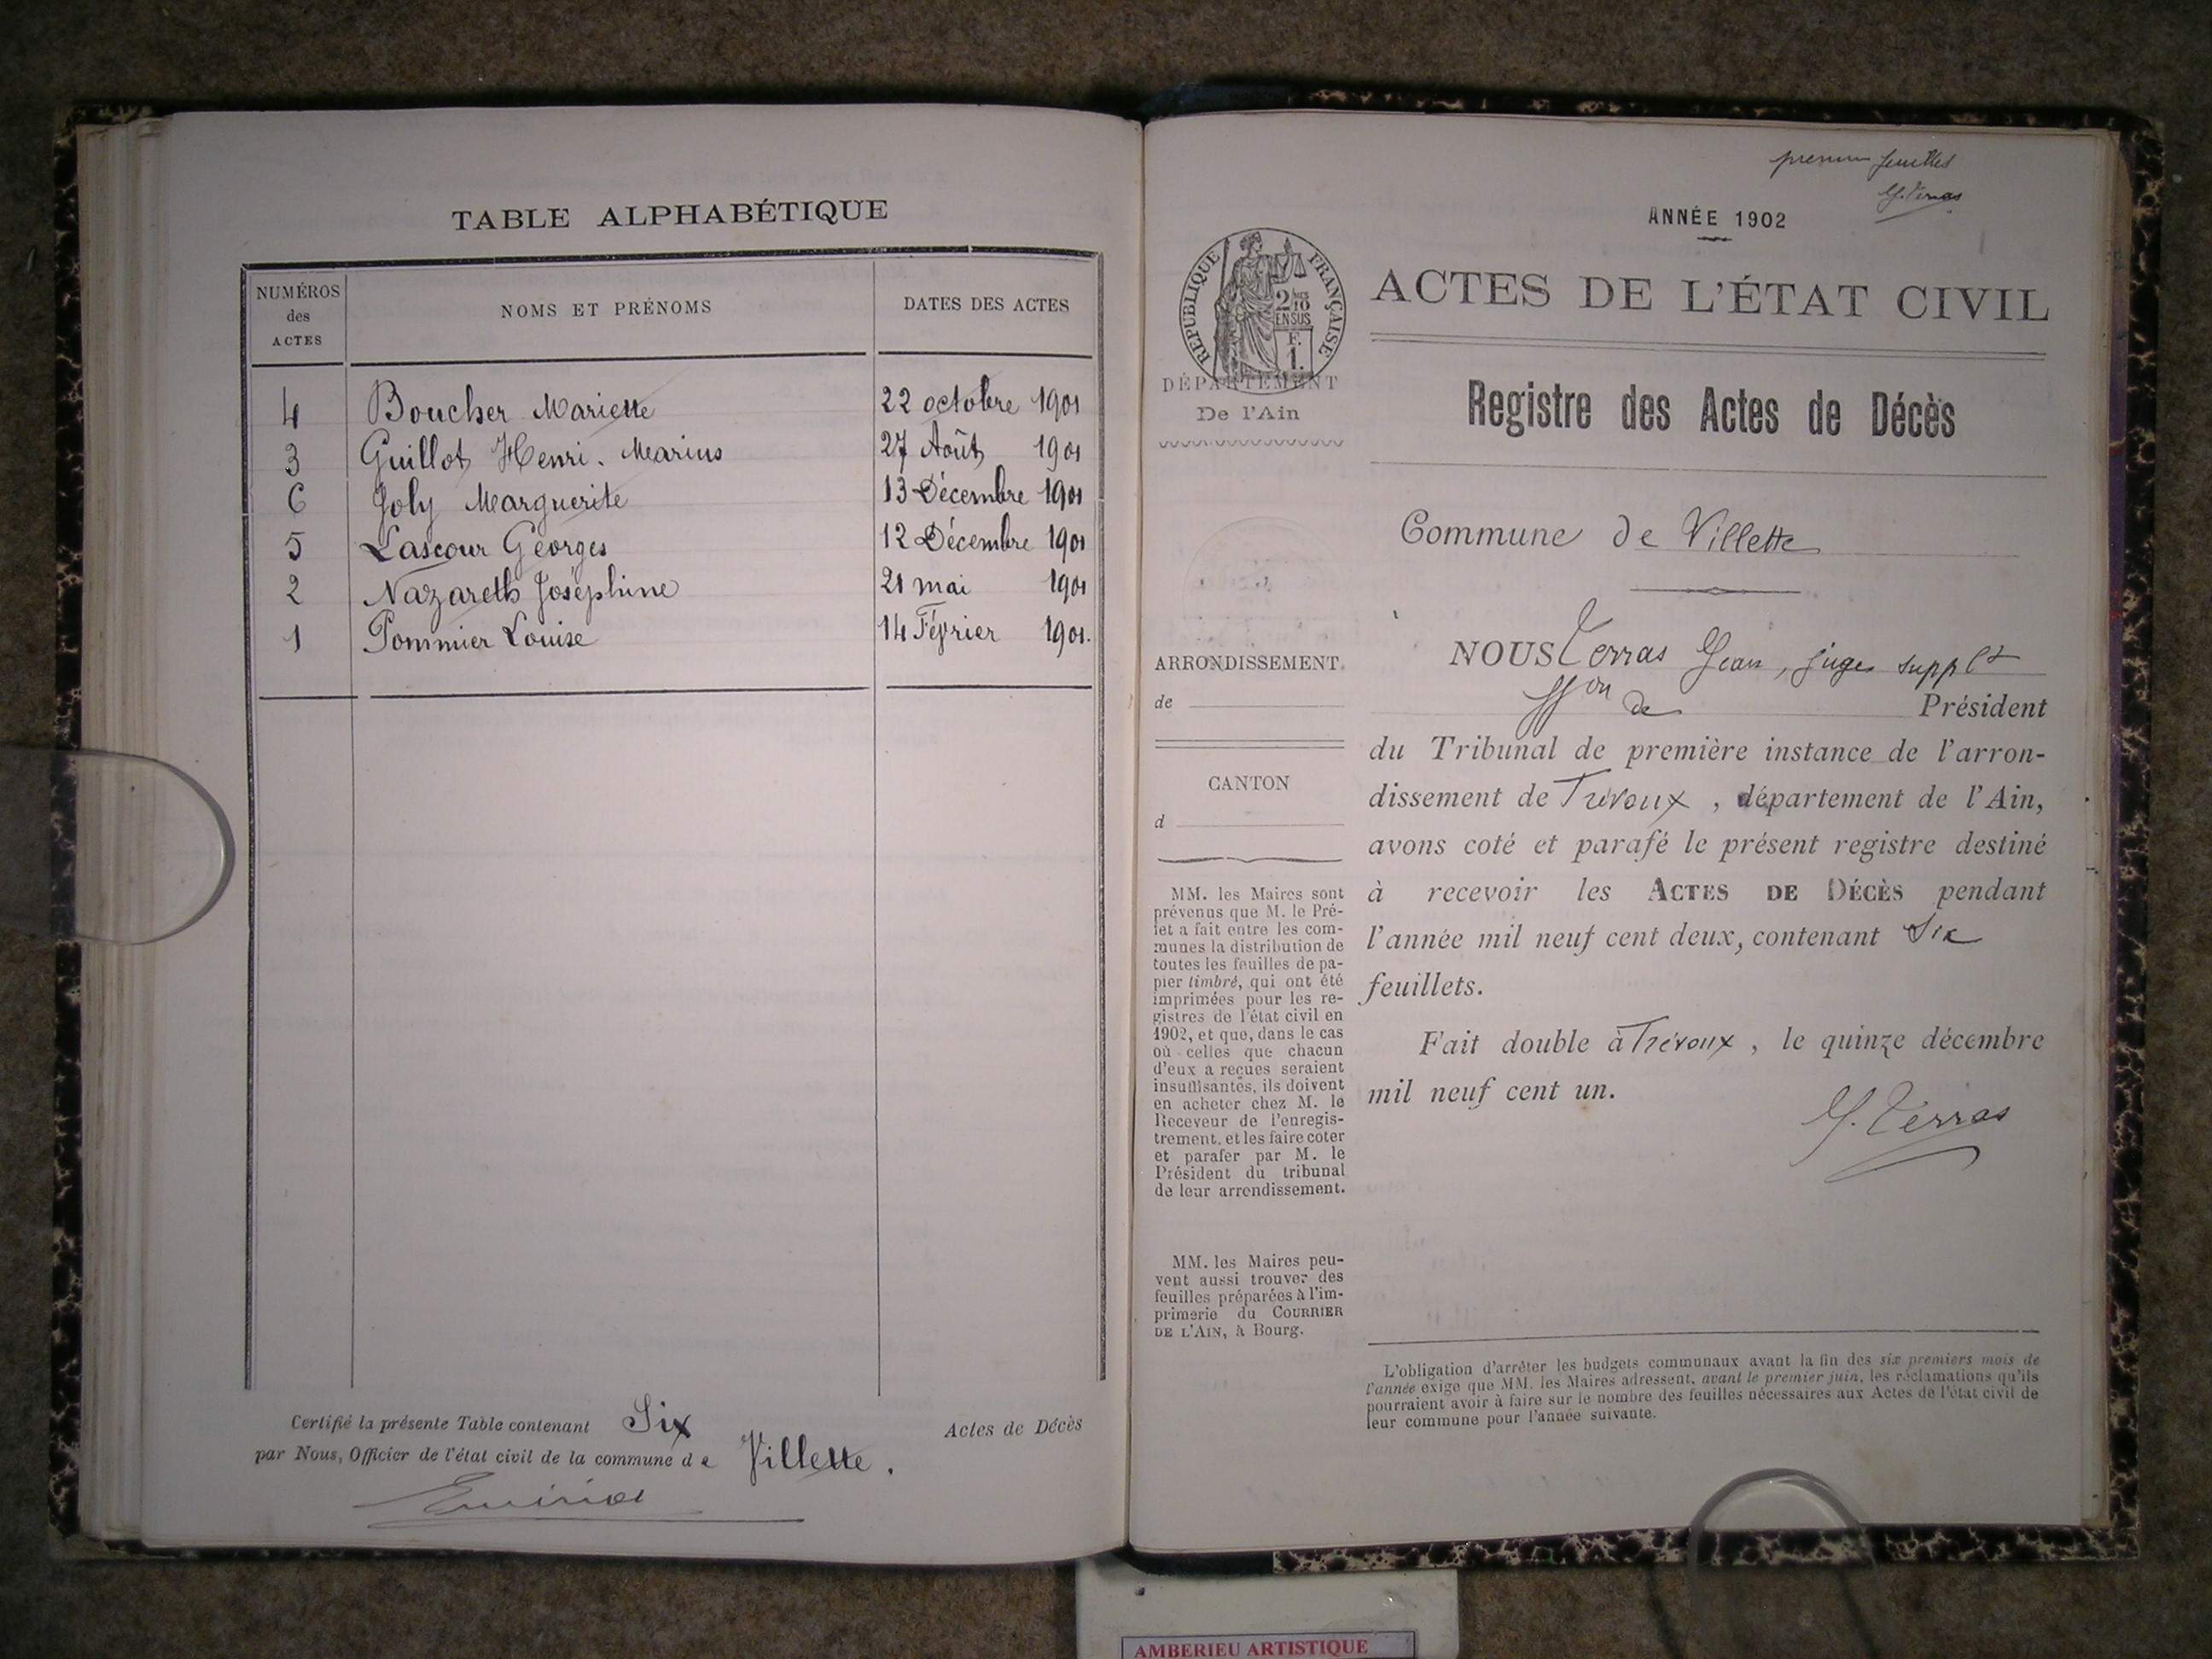 TABLE ALPHABÉTIQUE
NUMÉROS
des
ACTES
NOMS ET PRÉNOMS
DATES DES ACTES
4 Boucher Mariette 22 octobre 1901
3 Guillot Henri. Marius 27 Août 1901
6 Joly Marguerite 13 Décembre 1901
5 Lascour Georges 12 Décembre 1901
2 Nazareth Joséphine 21 mai 1901
1 Pommier Louise 14 Février 1901.
Certifié la présente Table contenant Six Actes de Décès
par Nous, Officier de l'état civil de la commune de Villette.
G. Terras
ANNÉE 1902
RÉPUBLIQUE FRANÇAISE
2/10
EN SUS
F.
1.
ACTES DE L'ÉTAT CIVIL
DÉPARTEMENT
De l'Ain
Registre des Actes de Décès
Commune de Villette
ARRONDISSEMENT.
de
CANTON
d
MM. les Maires sont
prévenus que M. le Pré-
fet a fait entre les com-
munes la distribution de
toutes les feuilles de pa-
pier timbré, qui ont été
imprimées pour les re-
gistres de l'état civil en
1902, et que, dans le cas
où celles que chacun
d'eux a reçues seraient
insuffisantes, ils doivent
en acheter chez M. le
Receveur de l'enregis-
trement, et les faire coter
et parafer par M. le
Président du tribunal
de leur arrondissement.
MM. les Maires peu-
vent aussi trouver des
feuilles préparées à l'im-
primerie du COURRIER
DE L'AIN, à Bourg.
NOUS Terras Jean, juge suppl<sup>t</sup>
ff<sup>on</sup> de Président
du Tribunal de première instance de l'arron-
dissement de Trévoux, département de l'Ain,
avons coté et parafé le présent registre destiné
à recevoir les ACTES DE DÉCÈS pendant
l'année mil neuf cent deux, contenant Six
feuillets.
Fait double à Trévoux, le quinze décembre
mil neuf cent un.
J. Terras
L'obligation d'arrêter les budgets communaux avant la fin des six premiers mois de
l'année exige que MM. les Maires adressent, avant le premier juin, les réclamations qu'ils
pourraient avoir à faire sur le nombre des feuilles nécessaires aux Actes de l'état civil de
leur commune pour l'année suivante.
AMBERIEU ARTISTIQUE